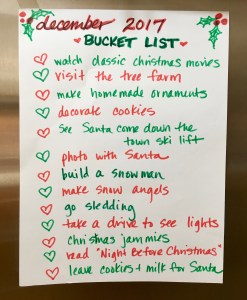 december 2017
BUCKET LIST
watch classic christmas movies
visit the tree farm
make homemade ornaments
decorate cookies
see Santa come down the
town ski lift
photo with Santa
build a snowman
make snow angels
go sledding
take a drive to see lights
christmas jammies
read "Night Before Christmas"
leave cookies + milk for Santa